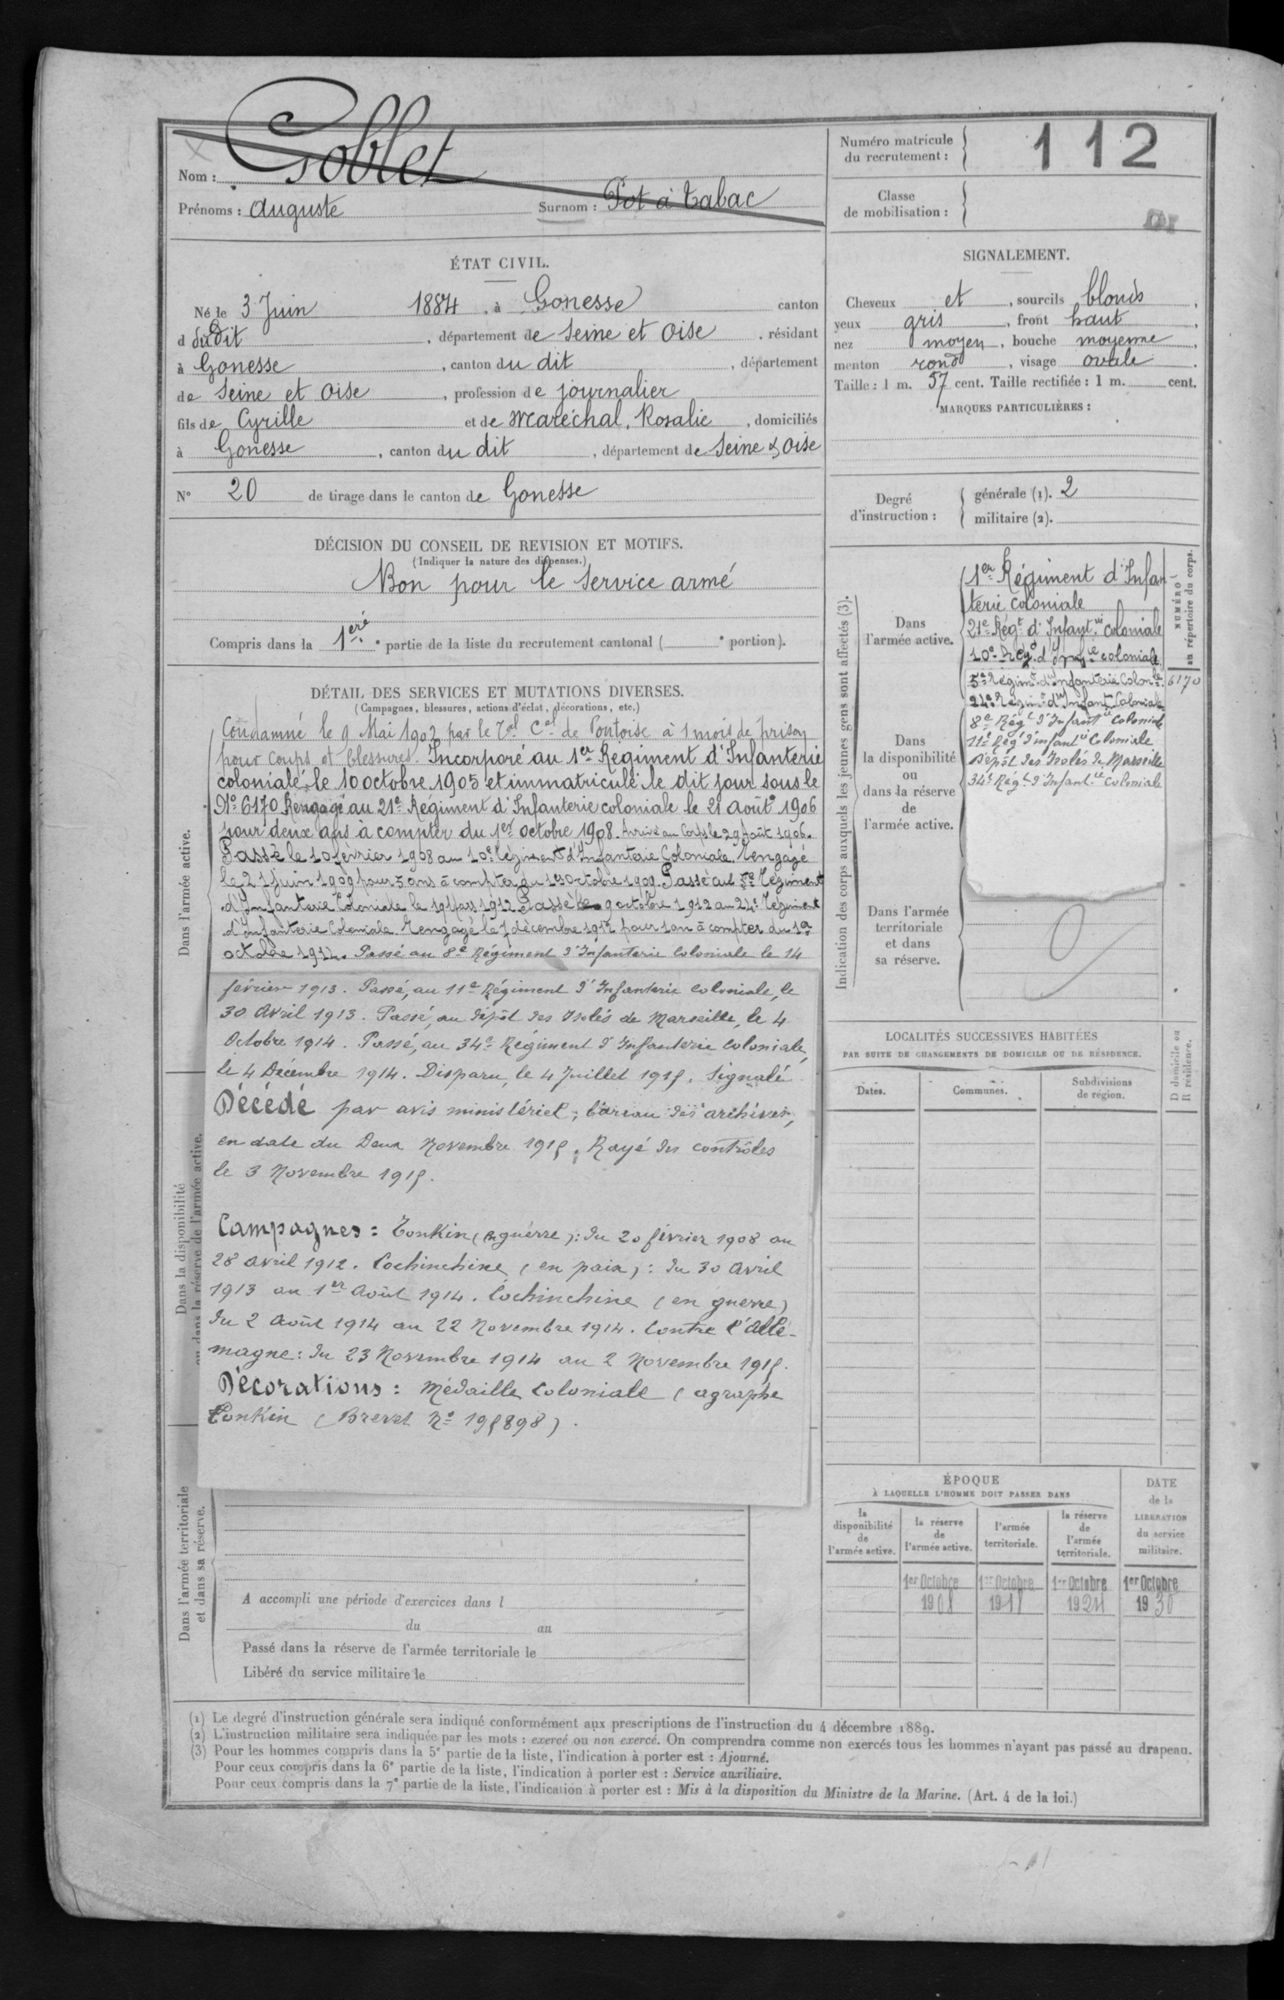 Nom : Goblet
Prénoms : Auguste Surnom : Pot à tabac
Numéro matricule du recrutement : 112
Classe de mobilisation :
ÉTAT CIVIL.
Né le 3 Juin 1884, à Gonesse canton
d dudit, département de Seine et Oise, résidant
à Gonesse, canton du dit, département
de Seine et Oise, profession de journalier
fils de Cyrille et de Maréchal, Rosalie, domiciliés
à Gonesse, canton du dit, département de Seine & Oise
N° 20 de tirage dans le canton de Gonesse
SIGNALEMENT.
Cheveux et, sourcils blonds,
yeux gris, front haut,
nez moyen, bouche moyenne,
menton rond, visage ovale.
Taille : 1 m. 57 cent. Taille rectifiée : 1 m. cent.
MARQUES PARTICULIÈRES :
Degré d'instruction : générale (1). 2
militaire (2).
DÉCISION DU CONSEIL DE REVISION ET MOTIFS.
(Indiquer la nature des dispenses.)
Bon pour le Service armé
Compris dans la 1ère partie de la liste du recrutement cantonal ( e portion).
DÉTAIL DES SERVICES ET MUTATIONS DIVERSES.
(Campagnes, blessures, actions d'éclat, décorations, etc.)
Dans l'armée active.
Condamné le 9 Mai 1902 par le Tal Cel de Pontoise à 1 mois de prison
pour coups et blessures. Incorporé au 1er Régiment d'Infanterie
coloniale, le 10 octobre 1905 et immatriculé le dit jour sous le
N° 6170 Rengagé au 21e Régiment d'Infanterie coloniale le 21 Août 1906
pour deux ans à compter du 1er octobre 1908. Arrivé au Corps le 29 Août 1906.
Passé le 10 février 1908 au 10e Régiment d'Infanterie Coloniale. Rengagé
le 21 Juin 1909 pour 3 ans à compter du 1er octobre 1909. Passé au 5e Régiment
d'Infanterie Coloniale le 19 Mars 1912. Passé le 9 octobre 1912 au 24e Régiment
d'infanterie Coloniale. Rengagé le 7 décembre 1912 pour 1 an à compter du 1er
octobre 1914. Passé au 8e Régiment d'Infanterie Coloniale le 14
février 1913. Passé, au 11e Régiment d'Infanterie coloniale, le
30 Avril 1913. Passé, au dépôt des Isolés de Marseille, le 4
Octobre 1914. Passé, au 34e Régiment d'Infanterie coloniale,
le 4 Décembre 1914. Disparu, le 4 Juillet 1915. Signalé
Décédé par avis ministériel, bureau des archives,
en date du Deux Novembre 1915. Rayé des contrôles
le 3 Novembre 1915.
Campagnes : Tonkin (en guerre) : du 20 février 1908 au
28 avril 1912. Cochinchine (en paix) : du 30 Avril
1913 au 1er Août 1914. Cochinchine (en guerre)
du 2 août 1914 au 22 Novembre 1914. Contre l'Alle-
magne : du 23 Novembre 1914 au 2 Novembre 1915.
Décorations : Médaille coloniale (agraphe
Tonkin (Brevet N° 195898).
Dans la disponibilité
ou dans la réserve de l'armée active.
Dans l'armée territoriale
et dans sa réserve.
A accompli une période d'exercices dans l
du au
Passé dans la réserve de l'armée territoriale le
Libéré du service militaire le
Indication des corps auxquels les jeunes gens sont affectés (3).
NUMÉRO
au répertoire du corps.
Dans l'armée active.
1er Régiment d'Infan-
terie coloniale
21e Régt d'Infantie coloniale
10e Régt d'Infie coloniale
5e Régimt d'Infanterie Colonle 6170
24e Régimt d'Infant Coloniale
Dans la disponibilité ou dans la réserve de l'armée active.
8e Régt d'Infantie Coloniale
11e Régt d'infantie Coloniale
Dépôt des Isolés de Marseille
34e Régt d'Infantie Coloniale
Dans l'armée territoriale et dans sa réserve.
LOCALITÉS SUCCESSIVES HABITÉES
PAR SUITE DE CHANGEMENTS DE DOMICILE OU DE RÉSIDENCE.
Dates. Communes. Subdivisions de région. D domicile ou R résidence.
ÉPOQUE
À LAQUELLE L'HOMME DOIT PASSER DANS
DATE de la LIBÉRATION du service militaire.
la disponibilité de l'armée active. la réserve de l'armée active. l'armée territoriale. la réserve de l'armée territoriale.
1er Octobre 1er Octobre 1er Octobre 1er Octobre
1908 1918 1924 1930
(1) Le degré d'instruction générale sera indiqué conformément aux prescriptions de l'instruction du 4 décembre 1889.
(2) L'instruction militaire sera indiquée par les mots : exercé ou non exercé. On comprendra comme non exercés tous les hommes n'ayant pas passé au drapeau.
(3) Pour les hommes compris dans la 5e partie de la liste, l'indication à porter est : Ajourné.
Pour ceux compris dans la 6e partie de la liste, l'indication à porter est : Service auxiliaire.
Pour ceux compris dans la 7e partie de la liste, l'indication à porter est : Mis à la disposition du Ministre de la Marine. (Art. 4 de la loi.)